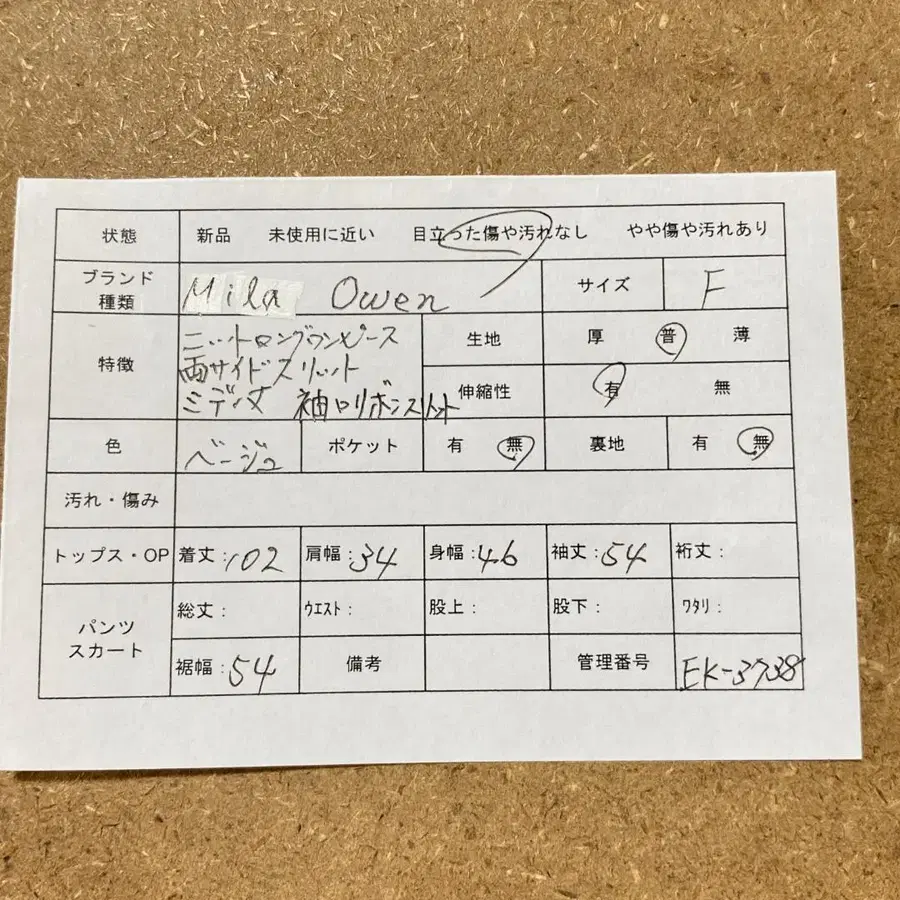 状態 新品 未使用に近い 目立った傷や汚れなし やや傷や汚れあり
ブランド種類 Mila Owen サイズ F
特徴 ニットロングワンピース
両サイドスリット
ミディ丈 袖口リボンスリット
生地 厚 普 薄
伸縮性 有 無
色 ベージュ ポケット 有 無 裏地 有 無
汚れ・傷み
トップス・OP 着丈:102 肩幅:34 身幅:46 袖丈:54 裄丈:
パンツ
スカート
総丈: ウエスト: 股上: 股下: ワタリ:
裾幅:54 備考 管理番号 EK-3738